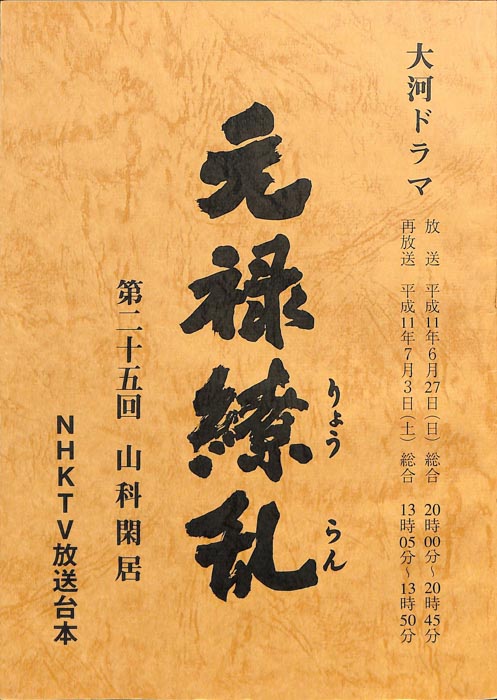 大河ドラマ
放　送　平成11年6月27日(日)　総合　20時00分〜20時45分
再放送　平成11年7月3日(土)　総合　13時05分〜13時50分
元禄繚乱
りょう　らん
第二十五回　山科閑居
NHKTV放送台本